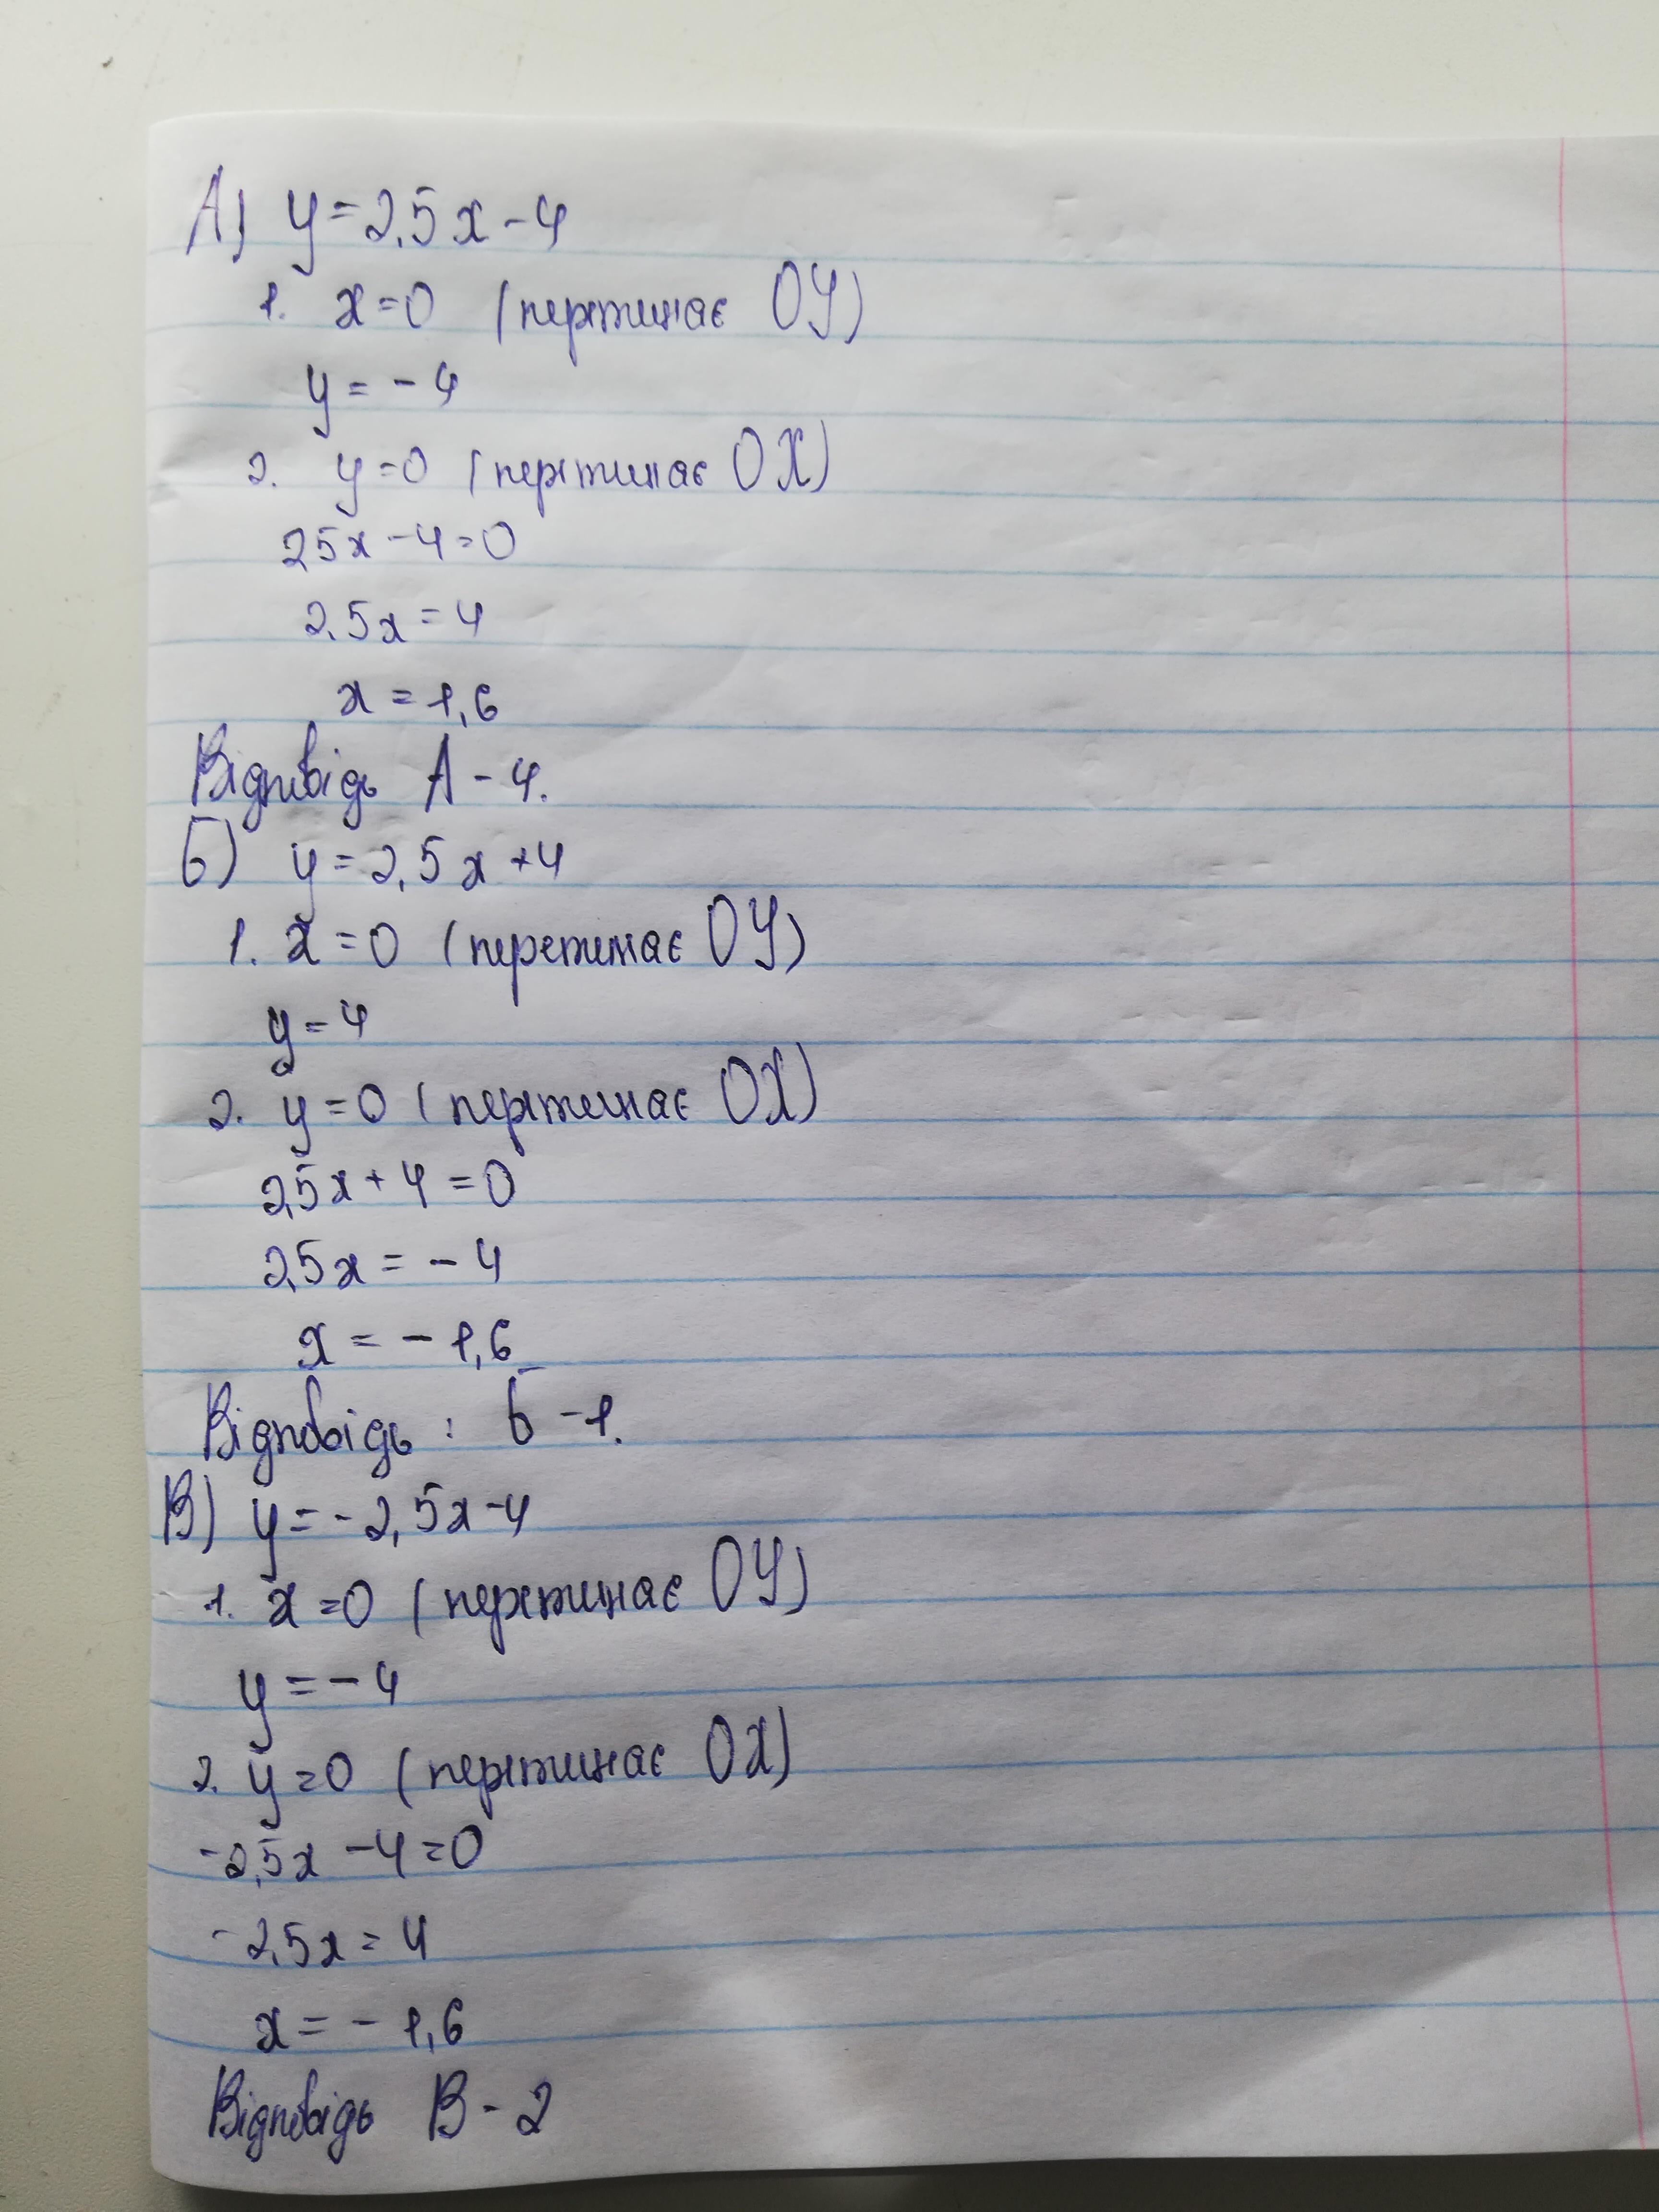 А) y=2,5x-4
1. x=0 (перетинає OY)
y=-4
2. y=0 (перетинає OX)
2,5x-4=0
2,5x=4
x=1,6
Відповідь А-4.
Б) y=2,5x+4
1. x=0 (перетинає OY)
y=4
2. y=0 (перетинає OX)
2,5x+4=0
2,5x=-4
x=-1,6
Відповідь: Б-1.
В) y=-2,5x-4
1. x=0 (перетинає OY)
y=-4
2. y=0 (перетинає OX)
-2,5x-4=0
-2,5x=4
x=-1,6
Відповідь В-2